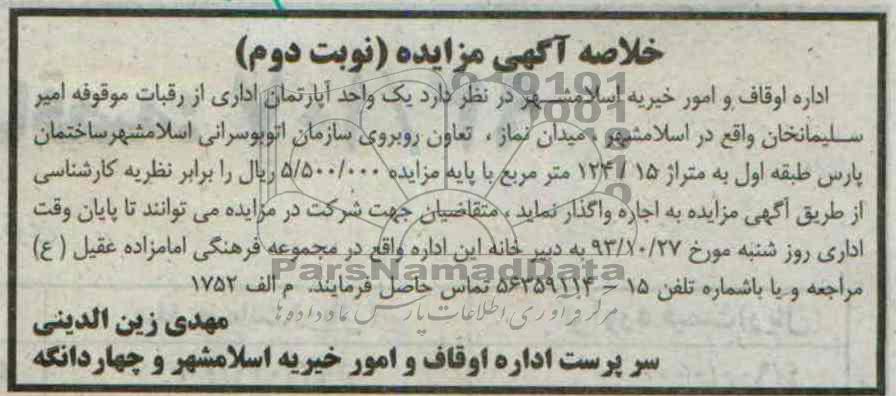 خلاصه آگهی مزایده (نوبت دوم)
اداره اوقاف و امور خیریه اسلامشهر در نظر دارد یک واحد آپارتمان اداری از رقبات موقوفه امیر
سلیمانخان واقع در اسلامشهر ، میدان نماز ، تعاون روبروی سازمان اتوبوسرانی اسلامشهرساختمان
پارس طبقه اول به متراژ ۱۵ / ۱۲۴ متر مربع با پایه مزایده ۵/۵۰۰/۰۰۰ ریال را برابر نظریه کارشناسی
از طریق آگهی مزایده به اجاره واگذار نماید ، متقاضیان جهت شرکت در مزایده می توانند تا پایان وقت
اداری روز شنبه مورخ ۹۳/۱۰/۲۷ به دبیر خانه این اداره واقع در مجموعه فرهنگی امامزاده عقیل ( ع)
ParsNamadData
مراجعه و یا باشماره تلفن ۱۵ – ۵۶۳۵۹۲۱۴ تماس حاصل فرمایند. م الف ۱۷۵۲
مرکز فرآوری اطلاعات پارس نماد داده ها
مهدی زین الدینی
سر پرست اداره اوقاف و امور خیریه اسلامشهر و چهاردانگه